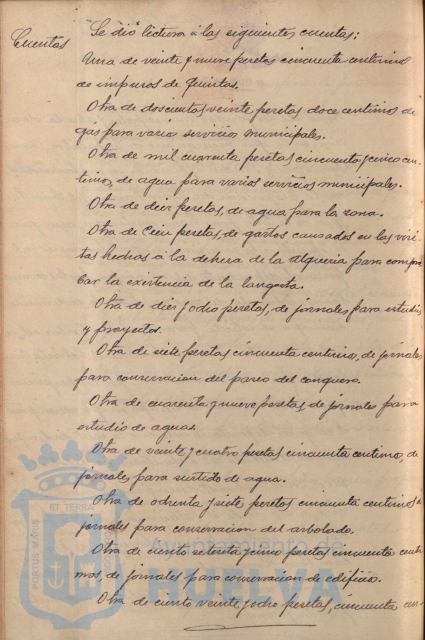 Cuentas
Se dió lectura á las siguientes cuentas:
Una de veinte y nueve pesetas cincuenta centimos
de impresos de Quintas.
Otra de doscientas veinte pesetas doce centimos de
gas para varios servicios municipales.
Otra de mil cuarenta pesetas cincuenta y cinco cen-
timos, de agua para varios servicios municipales.
Otra de diez pesetas, de agua para la zona.
Otra de Cien pesetas, de gastos causados en las visi-
tas hechas á la dehesa de la Alqueria para compro-
bar la existencia de la langosta.
Otra de diez y ocho pesetas, de jornales para estudios
y proyectos.
Otra de siete pesetas cincuenta centimos, de jornales
para conservacion del paseo del conquero.
Otra de cuarenta y nueve pesetas, de jornales para
estudio de aguas.
Otra de veinte y cuatro pesetas cincuenta centimos, de
jornales para surtido de agua.
Otra de ochenta y siete pesetas cincuenta centimos de
jornales para conservacion del arbolado.
Otra de ciento setenta y cinco pesetas cincuenta centi-
mos, de jornales para conservacion de edificios.
Otra de ciento veinte y ocho pesetas, cincuenta cen-
PORTUS MARIS
ET TERRA
Ayuntamiento de
HUELVA